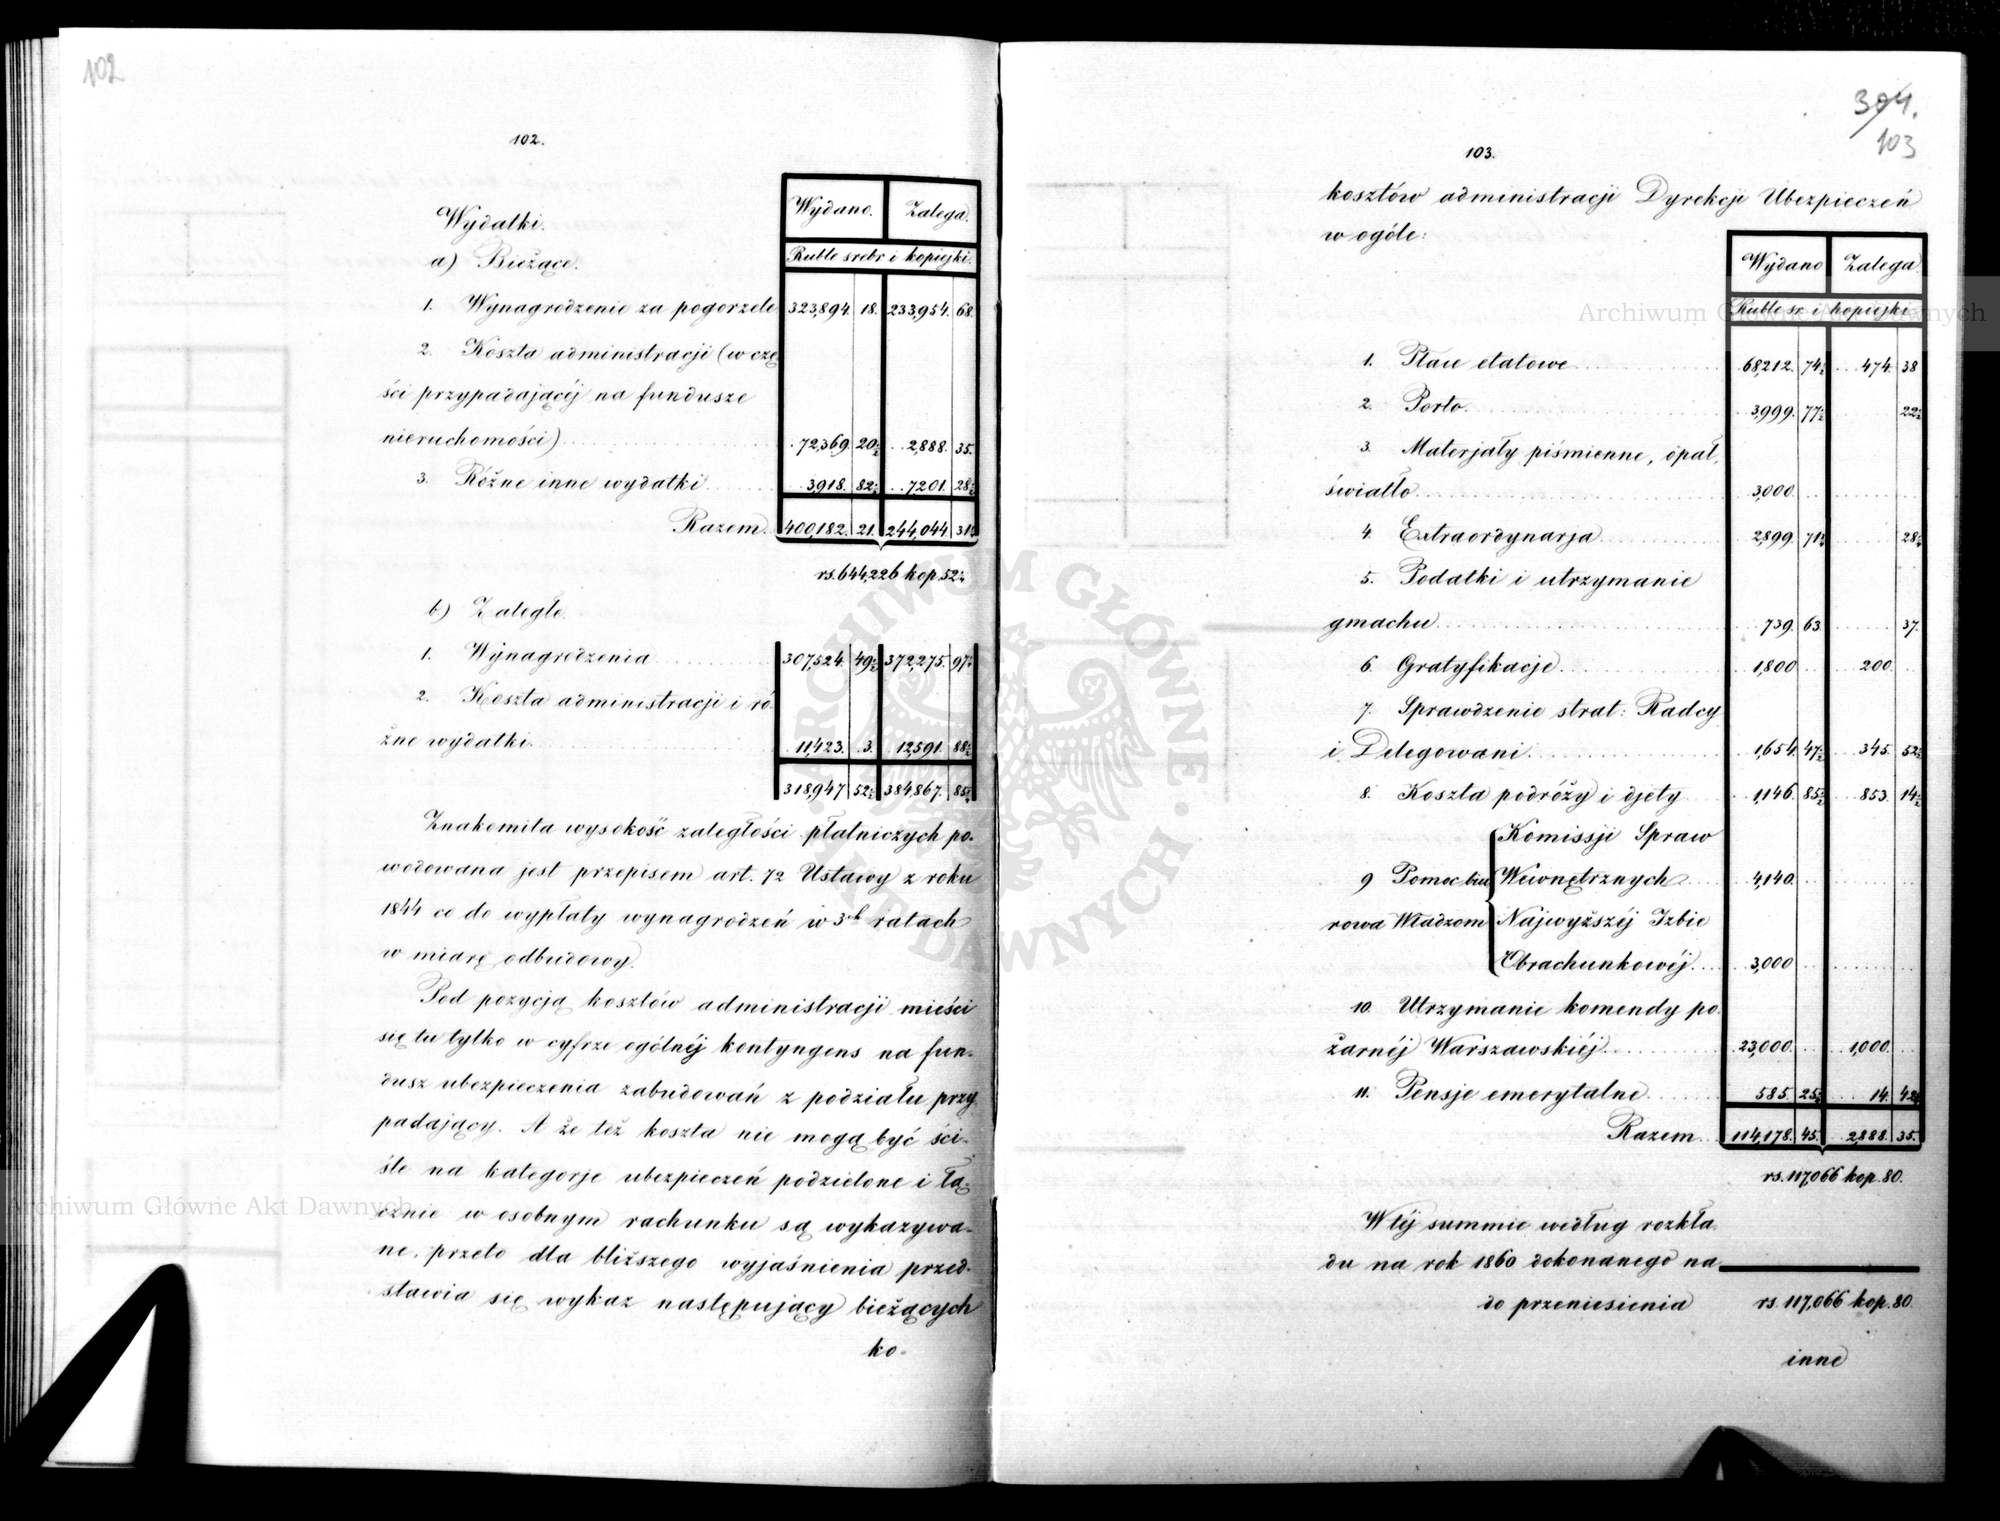 102
102.
Wydatki.
a) Bieżące.
Wydano. Zalega.
Ruble srebr i kopiejki.
1. Wynagrodzenie za pogorzele 323,894. 18. 233,954. 68.
2. Koszta administracji (w czę
ści przypadającéj na fundusze
nieruchomości) 72,369. 20½ 2,888. 35.
3. Różne inne wydatki 3,918. 82½ 7201. 28½
Razem. 400,182. 21. 244,044. 31½
rs. 644,226 kop. 52½
b) Zaległe.
1. Wynagrodzenia 307,524. 49½ 372,275. 97½
2. Koszta administracji i ró-
żne wydatki. 11,423. 3. 12,591. 88½
318,947 52½ 384,867. 85½
Znakomita wysokość zaległości płatniczych po-
wodowana jest przepisem art. 72 Ustawy z roku
1844 co do wypłaty wynagrodzeń w 3ch ratach
w miarę odbudowy.
Pod pozycją kosztów administracji mieści
się tu tylko w cyfrze ogólnéj kontyngens na fun-
dusz ubezpieczenia zabudowań z podziału przy
padający. A że też koszta nie mogą być ści-
śle na kategorje ubezpieczeń podzielone i łą-
cznie w osobnym rachunku są wykazywa-
ne, przeto dla bliższego wyjaśnienia przed-
stawia się wykaz następujący bieżących
ko-
304.
103
103.
kosztów administracji Dyrekcji Ubezpieczeń
w ogóle:
Wydano Zalega.
Ruble sr. i kopiejki
1. Płace etatowe 68,212. 74½ 474. 38
2. Porto. 3,999. 77½ 22½
3. Materjały piśmienne, opał,
światło 3,000.
4. Extraordynarja 2,899. 71½ 28½
5. Podatki i utrzymanie
gmachu 739. 63. 37.
6. Gratyfikacje 1,800 200.
7. Sprawdzenie strat: Radcy
i Delegowani 1,654. 47½ 345. 52½
8. Koszta podróży i djety 1,146. 85½ 853. 14½
Komissji Spraw
9 Pomoc biu Wewnętrznych 4,140.
rowa Władzom Najwyższéj Izbie
Obrachunkowéj 3,000
10. Utrzymanie komendy po
żarnéj Warszawskiéj 23,000. 1,000.
11. Pensje emerytalne 585. 25½ 14. 42½
Razem 114,178. 45. 2,888. 35.
rs. 117,066 kop. 80.
W téj summie według rozkła
du na rok 1860 dokonanego na
do przeniesienia rs. 117,066 kop. 80.
inne
Archiwum Główne Akt Dawnych
Archiwum Główne Akt Dawnych
ARCHIWUM GŁÓWNE AKT DAWNYCH